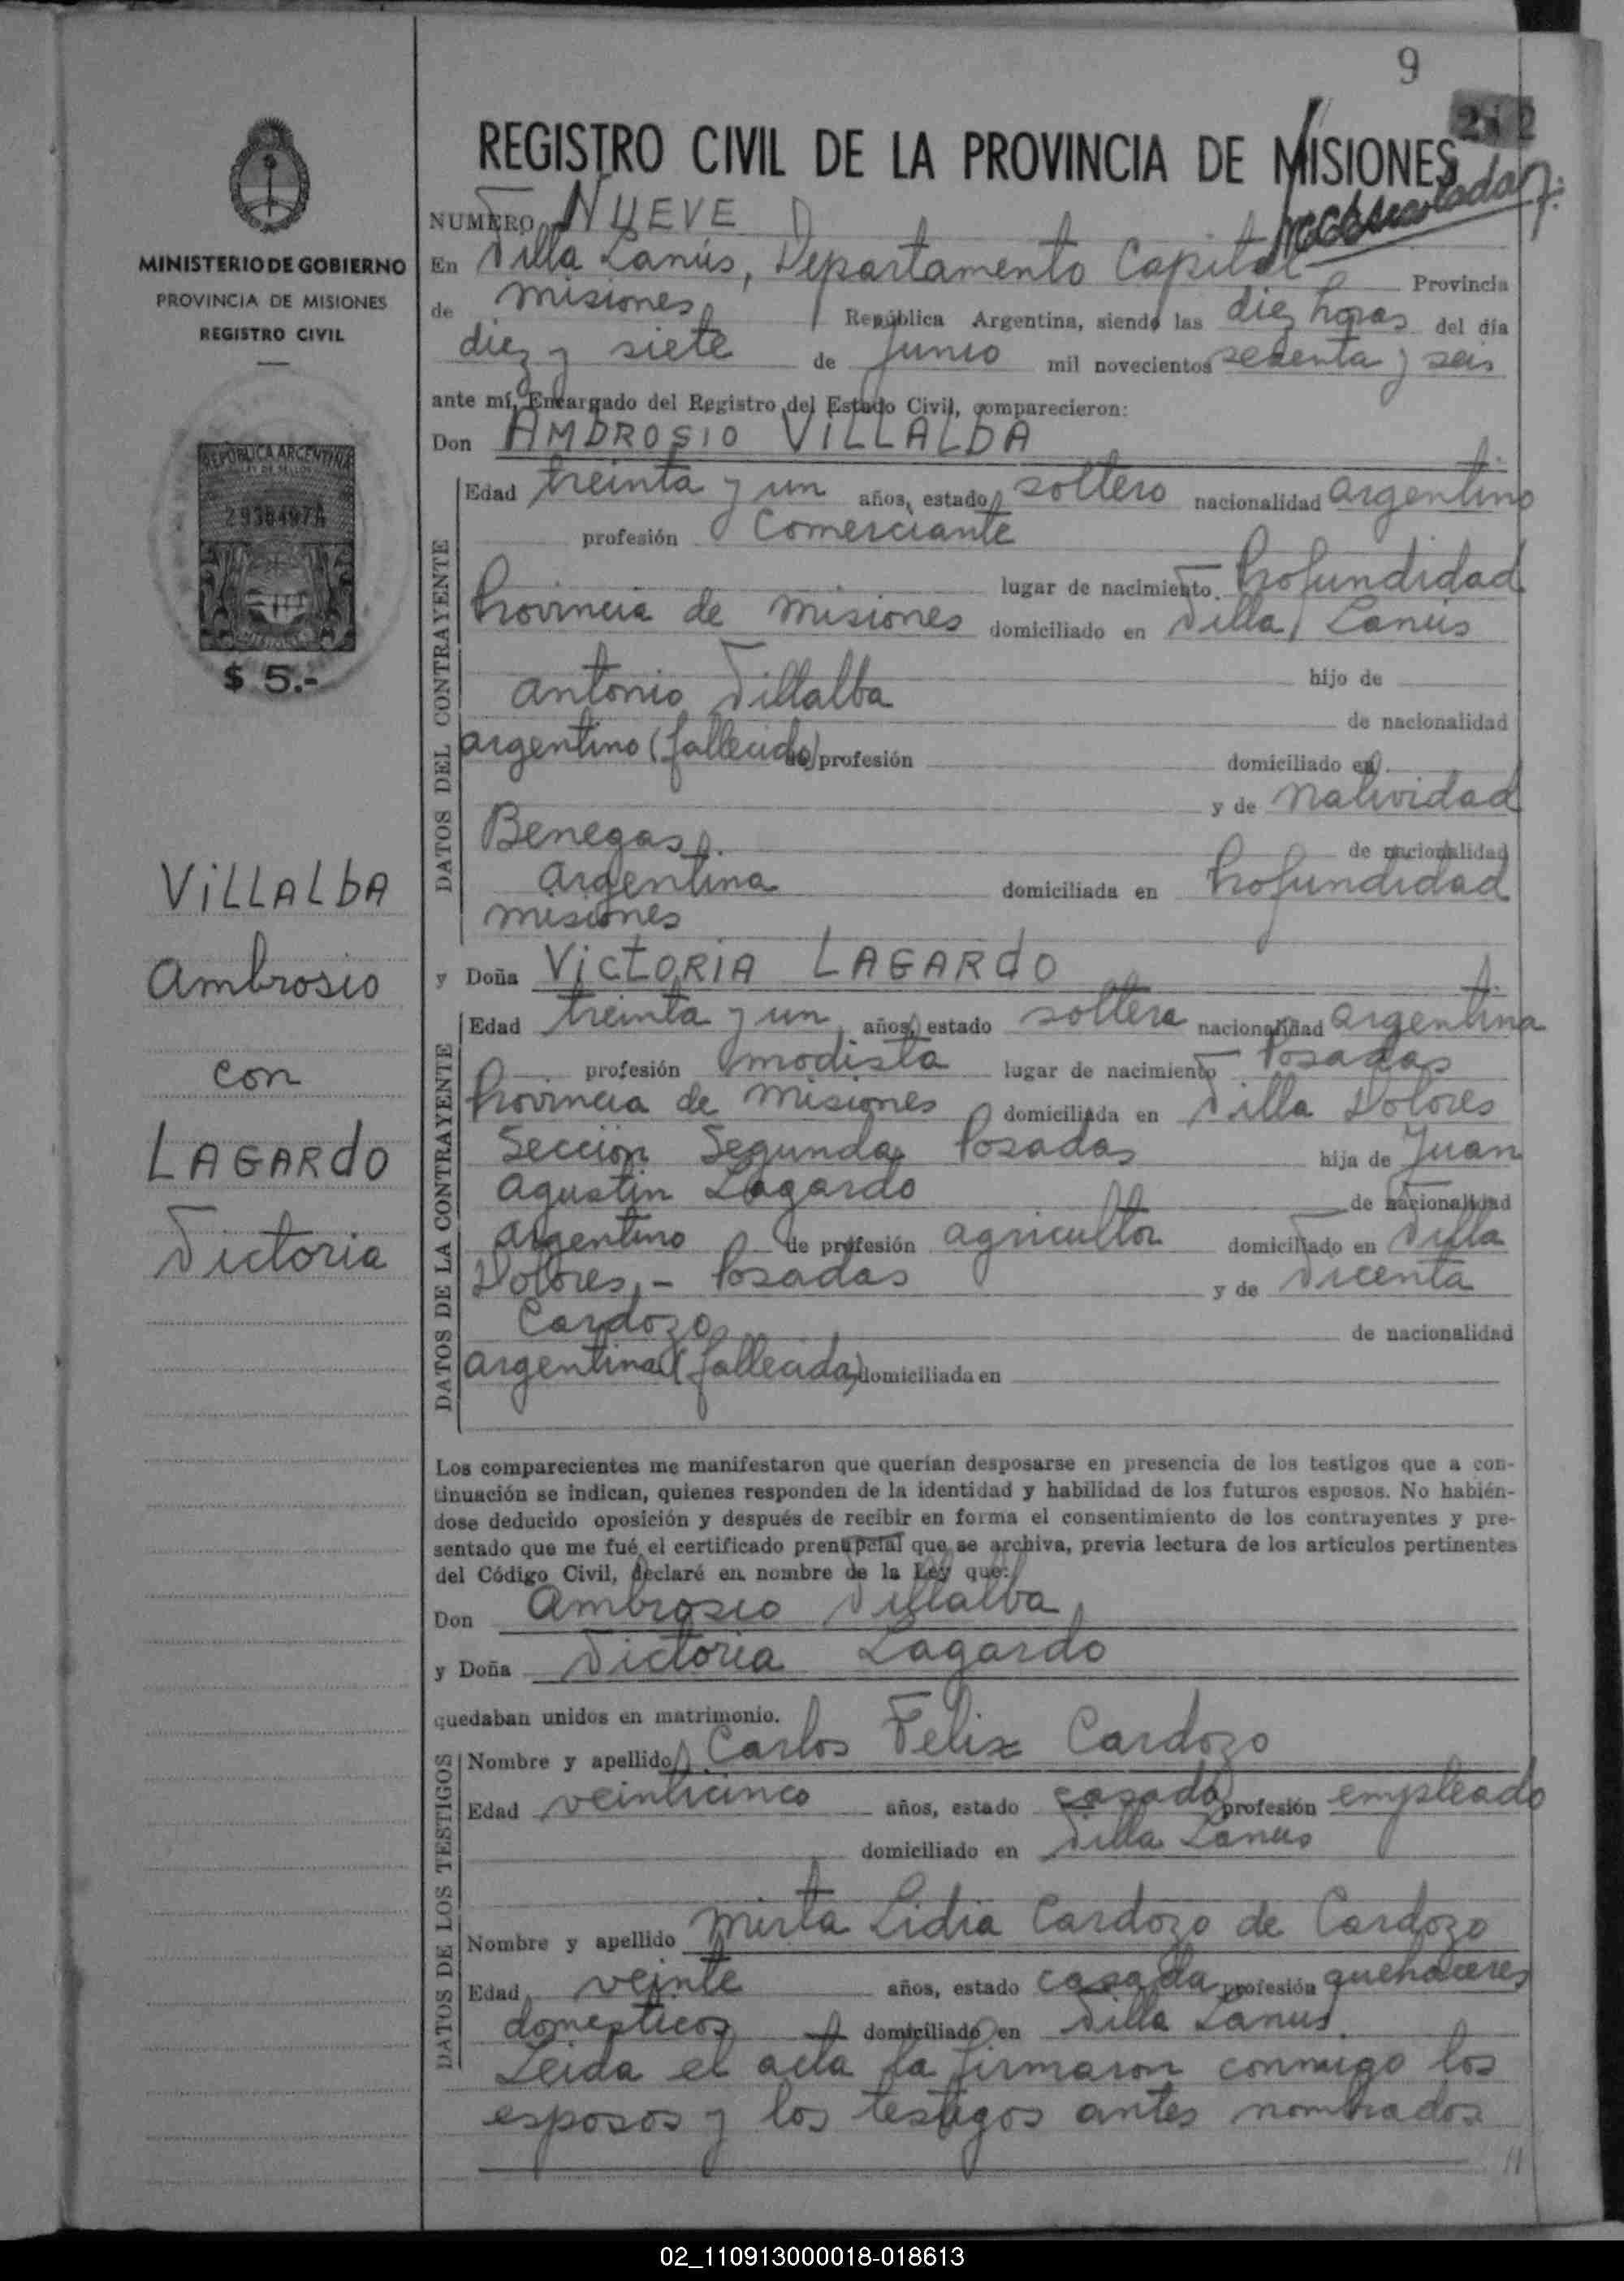 9
REGISTRO CIVIL DE LA PROVINCIA DE MISIONES
NUMERO NUEVE
En Villa Lanús, Departamento Capital Provincia
de Misiones República Argentina, siendo las diez horas del día
diez y siete de Junio mil novecientos sesenta y seis
ante mí, Encargado del Registro del Estado Civil, comparecieron:
Don AMBROSIO VILLALBA
DATOS DEL CONTRAYENTE
Edad treinta y un años, estado soltero nacionalidad argentino
profesión Comerciante
lugar de nacimiento. Profundidad
Provincia de Misiones domiciliado en Villa Lanús
hijo de
Antonio Villalba
de nacionalidad
argentino (fallecido) de profesión domiciliado en
y de Natividad
Benegas de nacionalidad
Argentina domiciliada en Profundidad
Misiones
y Doña VICTORIA LAGARDO
DATOS DE LA CONTRAYENTE
Edad treinta y un años, estado soltera nacionalidad argentina
profesión modista lugar de nacimiento Posadas
Provincia de Misiones domiciliada en Villa Dolores
Sección Segunda Posadas hija de Juan
Agustín Lagardo de nacionalidad
Argentino de profesión agricultor domiciliado en Villa
Dolores, - Posadas y de Vicenta
Cardozo de nacionalidad
argentina (fallecida) domiciliada en
Los comparecientes me manifestaron que querían desposarse en presencia de los testigos que a con-
tinuación se indican, quienes responden de la identidad y habilidad de los futuros esposos. No habién-
dose deducido oposición y después de recibir en forma el consentimiento de los contrayentes y pre-
sentado que me fué el certificado prenupcial que se archiva, previa lectura de los artículos pertinentes
del Código Civil, declaré en nombre de la Ley que:
Don Ambrosio Villalba
y Doña Victoria Lagardo
quedaban unidos en matrimonio.
DATOS DE LOS TESTIGOS
Nombre y apellido Carlos Felix Cardozo
Edad veinticinco años, estado casado profesión empleado
domiciliado en Villa Lanus
Nombre y apellido Mirta Lidia Cardozo de Cardozo
Edad veinte años, estado casada profesión quehaceres
domesticos domiciliado en Villa Lanus.
Leida el acta la firmaron conmigo los
esposos y los testigos antes nombrados
MINISTERIO DE GOBIERNO
PROVINCIA DE MISIONES
REGISTRO CIVIL
REPUBLICA ARGENTINA
LEY DE SELLOS
$ 5.-
VILLALBA
Ambrosio
con
LAGARDO
Victoria
02_110913000018-018613